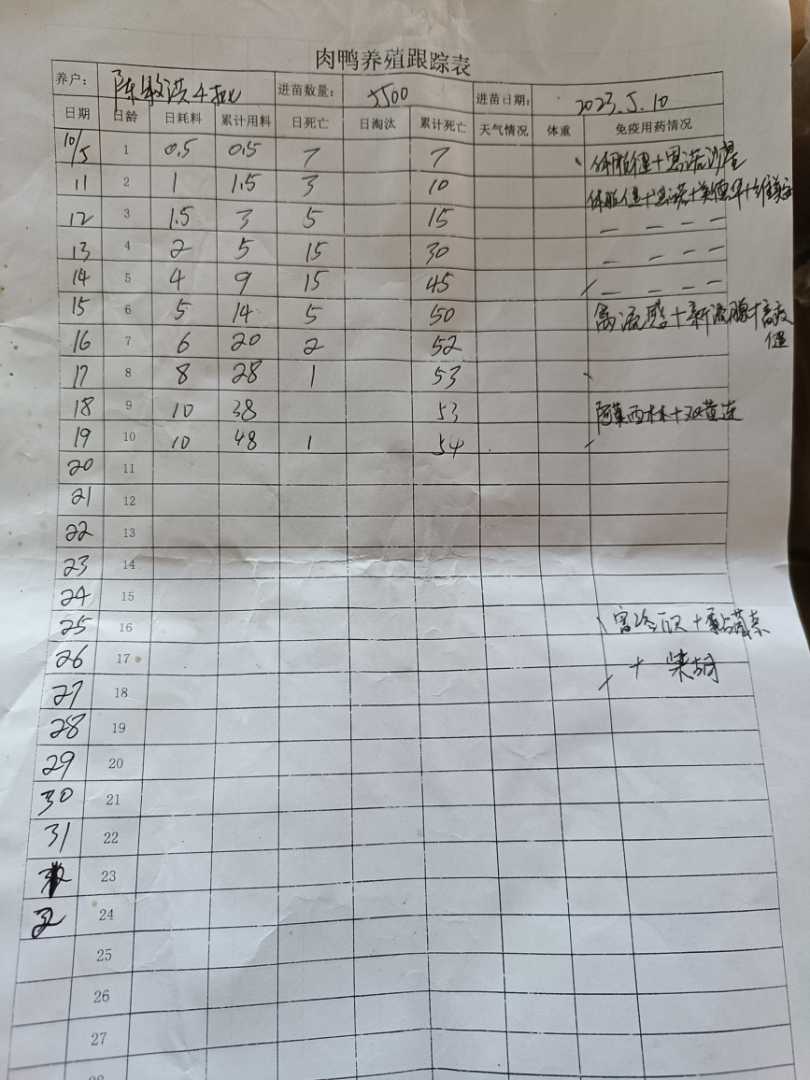 肉鸭养殖跟踪表
养户： 陈敏洪4批 进苗数量： 5500 进苗日期： 2023.5.10
日期 日龄 日耗料 累计用料 日死亡 日淘汰 累计死亡 天气情况 体重 免疫用药情况
10/5 1 0.5 0.5 7 7 恩诺沙星
11 2 1 1.5 3 10
12 3 1.5 3 5 15 — — — —
13 4 2 5 15 30 — — — —
14 5 4 9 15 45 — — — —
15 6 5 14 5 50 禽流感+新流腺+高效
16 7 6 20 2 52
17 8 8 28 1 53
18 9 10 38 53 阿莫西林+双黄连
19 10 10 48 1 54
20 11
21 12
22 13
23 14
24 15
25 16
26 17 + 柴胡
27 18
28 19
29 20
30 21
31 22
23
2 24
25
26
27
28